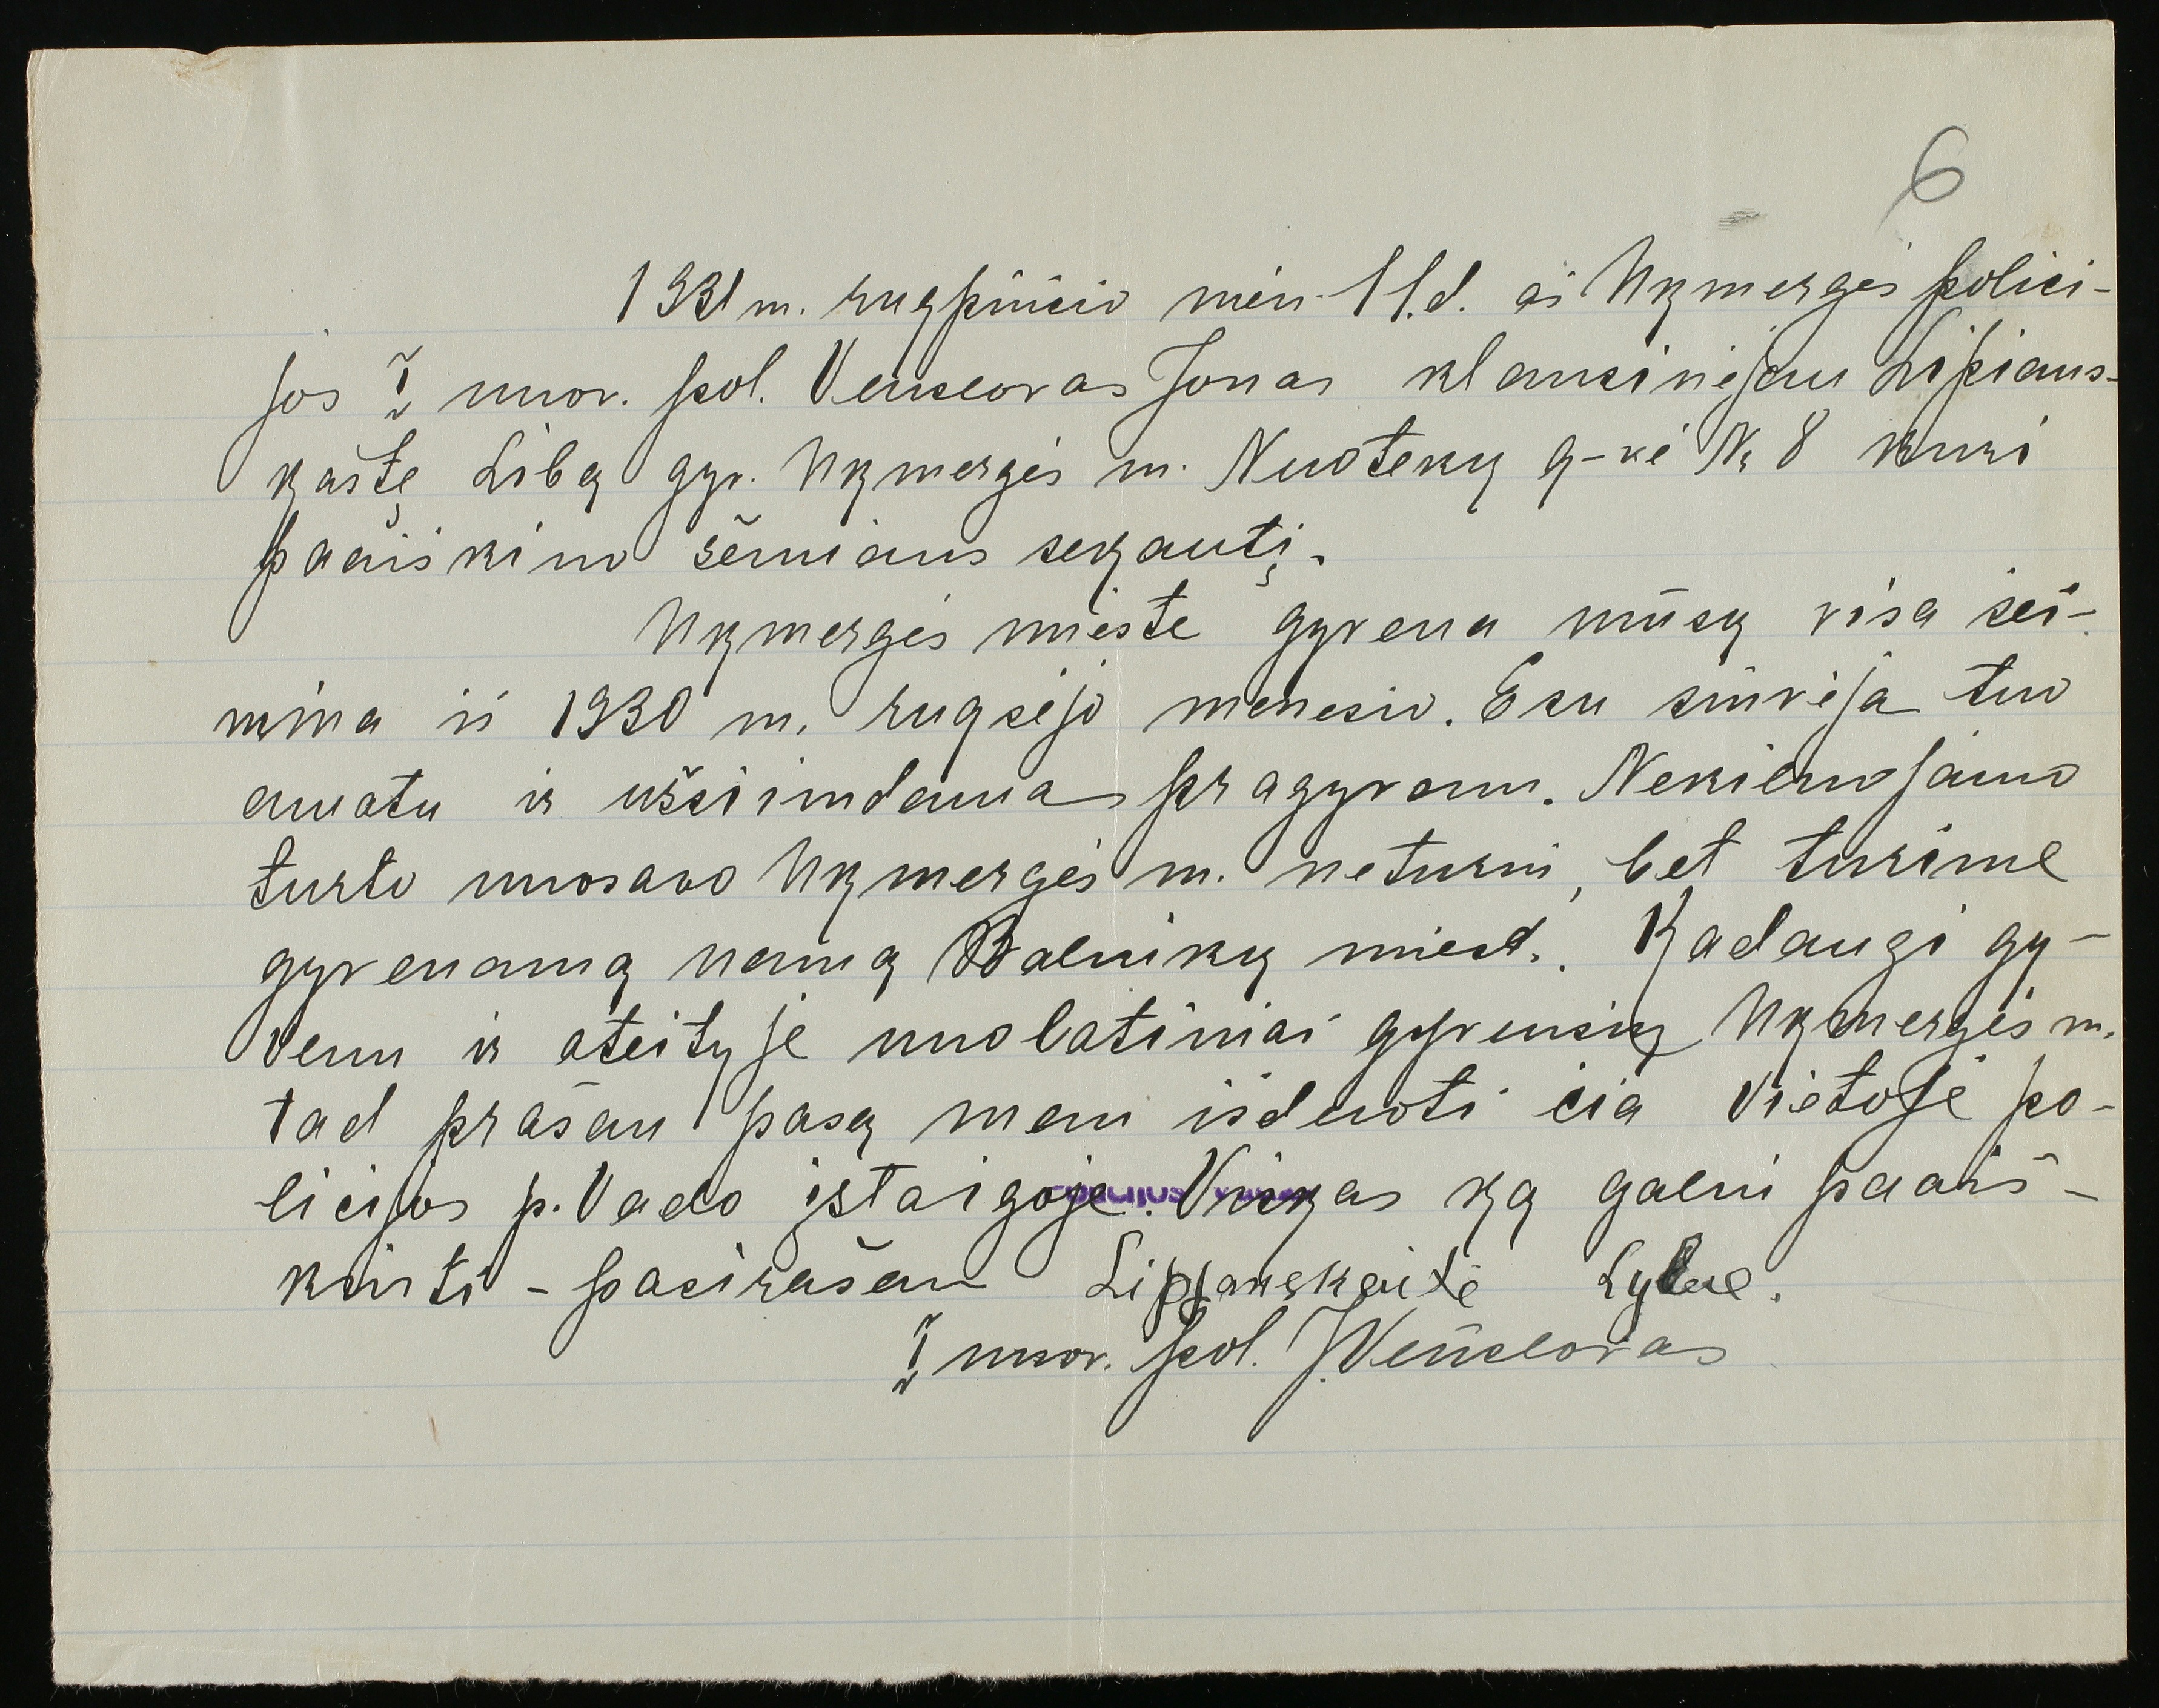 6
1931 m. rugpiūčio mėn 11.d. aš Ukmergės polici-
jos I nuov. pol. Venclovas Jonas klausinėjau Lipiaus-
kaštę Libą gyv. Ukmergės m. Nuotekų g-vė № 8 kuri
paaiškino šemiaus sekantį.
Ukmergės mieste gyvena mūsų visa šei-
mina iš 1930 m. rugsėjo menesio. Esu siuvėja tuo
amatu ir užsiimdama pragyvenu. Nekilnojamo
turto nuosavo Ukmergės m. neturiu, bet turime
gyvenamą namą Balnikų miest.. Kadangi gy-
venu ir ateityje nuolatiniai gyvensių Ukmergės m.
tad prašau pasą man išduoti čia vietoje po-
licijos p. Vado įstaigoje. Viskas ką galiu paaiš-
kinti - pasirašau Lipjanskaitė
I nuov. pol. J. Venclovas